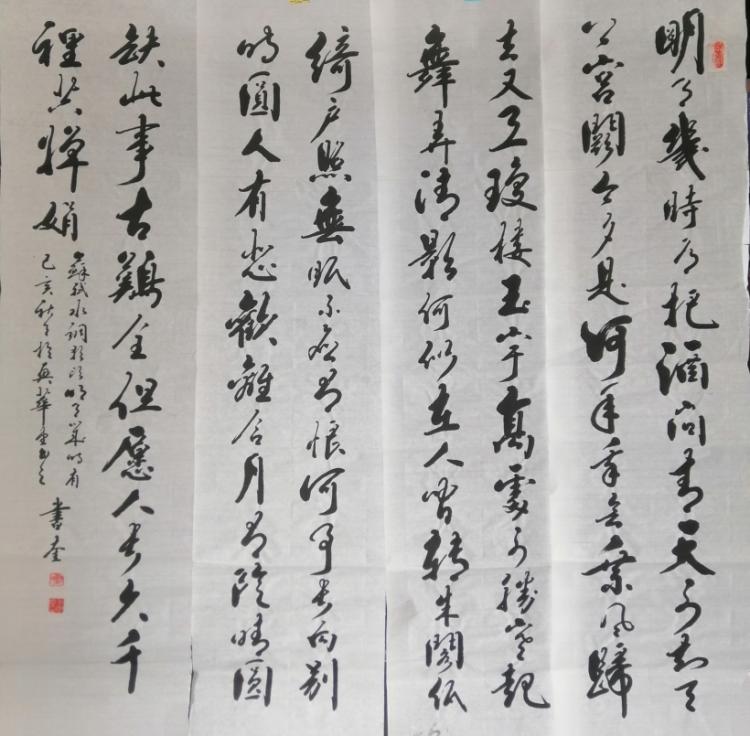 明月幾時有把酒問青天不知天
上宮闕今夕是何年我欲乘風歸
去又恐瓊樓玉宇高處不勝寒起
舞弄清影何似在人間轉朱閣低
綺戶照無眠不應有恨何事長向別
時圓人有悲歡離合月有陰晴圓
缺此事古難全但願人長久千
裡共嬋娟
蘇軾水調歌頭明月幾時有
己亥秋月於興華
書奎